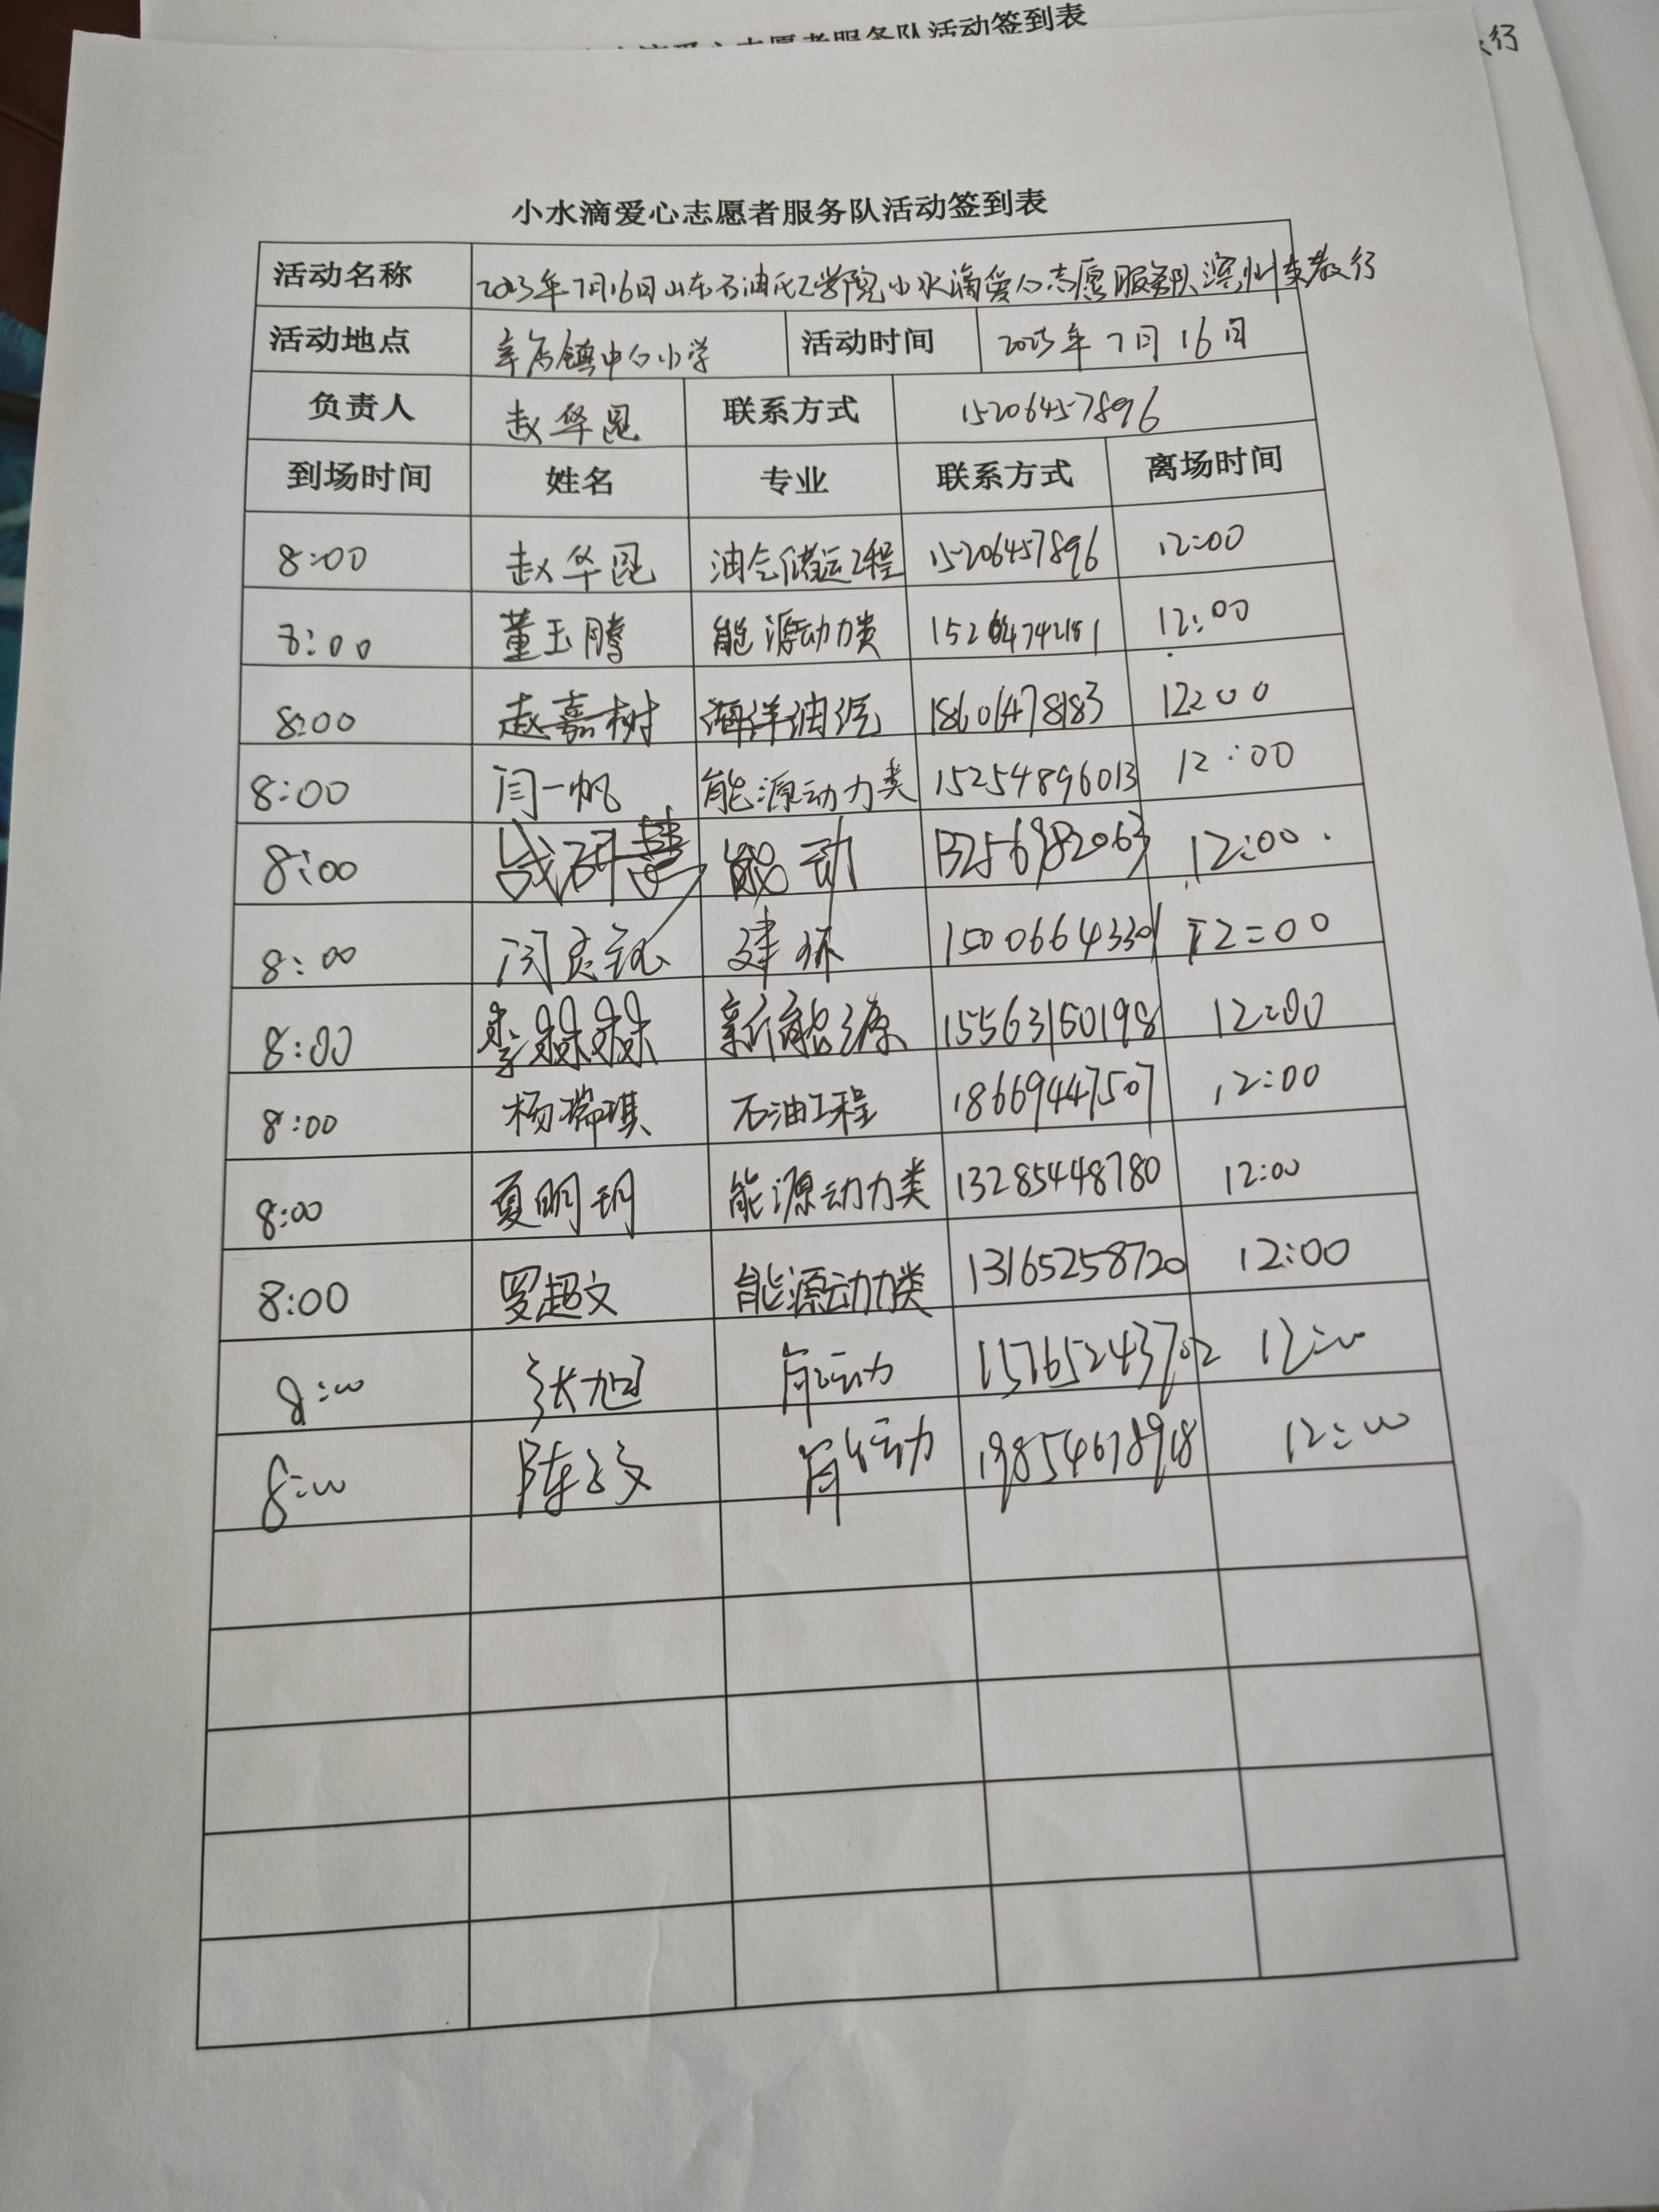 小水滴爱心志愿者服务队活动签到表
行
小水滴爱心志愿者服务队活动签到表
活动名称 2025年7月16日山东石油化工学院小水滴爱心志愿服务队滨州支教行
活动地点 辛店镇中心小学 活动时间 2025年7月16日
负责人 赵华昆 联系方式 15206457896
到场时间 姓名 专业 联系方式 离场时间
8:00 赵华昆 油气储运工程 15206457896 12:00
8:00 董玉腾 能源动力类 12:00
8:00 赵嘉树 海洋油气 18606478183 12:00
8:00 闫一帆 能源动力类 15254896013 12:00
8:00 战研慧 能动 13256982063 12:00
8:00 建环 15006643301 12:00
8:00 李淼淼 新能源 15563150198 12:00
8:00 杨瑞琪 石油工程 18669447507 12:00
8:00 夏明玥 能源动力类 13285448780 12:00
8:00 罗超文 能源动力类 13165258720 12:00
8:00 张旭 能动 15765243702 12:00
8:00 能动 12:00